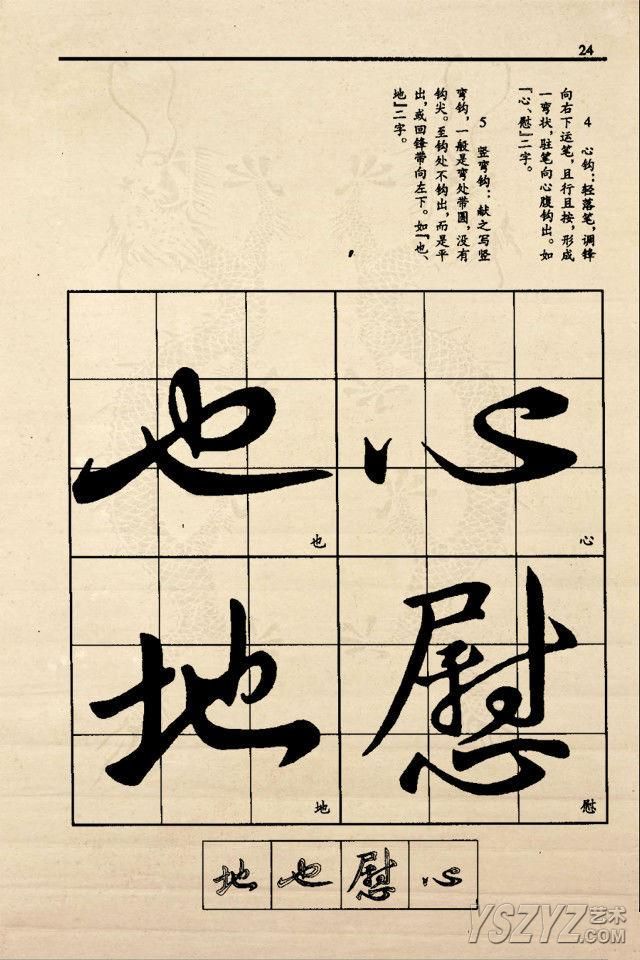 24
4 心钩：轻落笔，调锋
向右下运笔，且行且按，形成
一弯状，驻笔向心腹钩出。如
『心、慰』二字。
5 竖弯钩：献之写竖
弯钩，一般是弯处带圆，没有
钩尖。至钩处不钩出，而是平
出，或回锋带向左下。如『也、
地』二字。
心
心
慰
慰
也
也
地
地
地也慰心
YSZYZ艺术
.COM